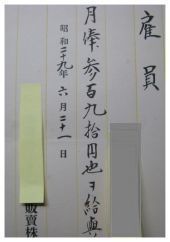 雇員
月俸参百九拾円也ヲ給與
昭和二十九年六月二十一日
販賣株